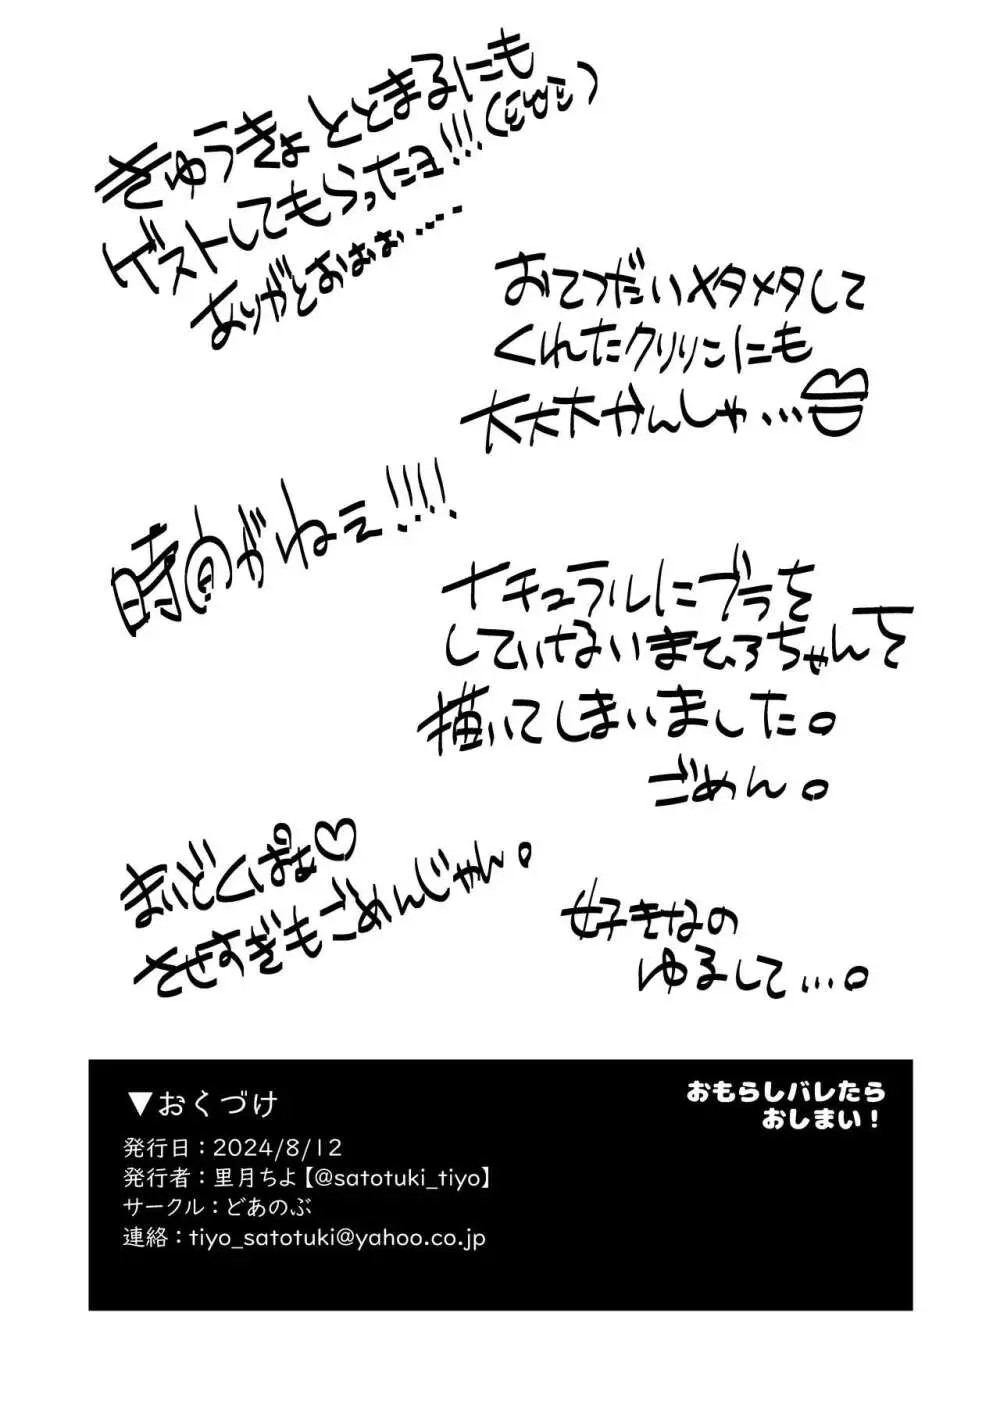 きゅうきょ ととまるにも
ゲストしてもらったヨ!!!(EωE)
ありがとおぉぉ....
おてつだいメタメタして
くれたクリリンにも
大大大かんしゃ...
時間がねェ!!!!
ナチュラルにブラを
していないまひろちゃんを
描いてしまいました。
ごめん。
まいどくぱぁ♡
させすぎもごめんじゃん。
好きなの
ゆるして...。
▼おくづけ
おもらしバレたら
おしまい！
発行日：2024/8/12
発行者：里月ちよ【@satotuki_tiyo】
サークル：どあのぶ
連絡：tiyo_satotuki@yahoo.co.jp